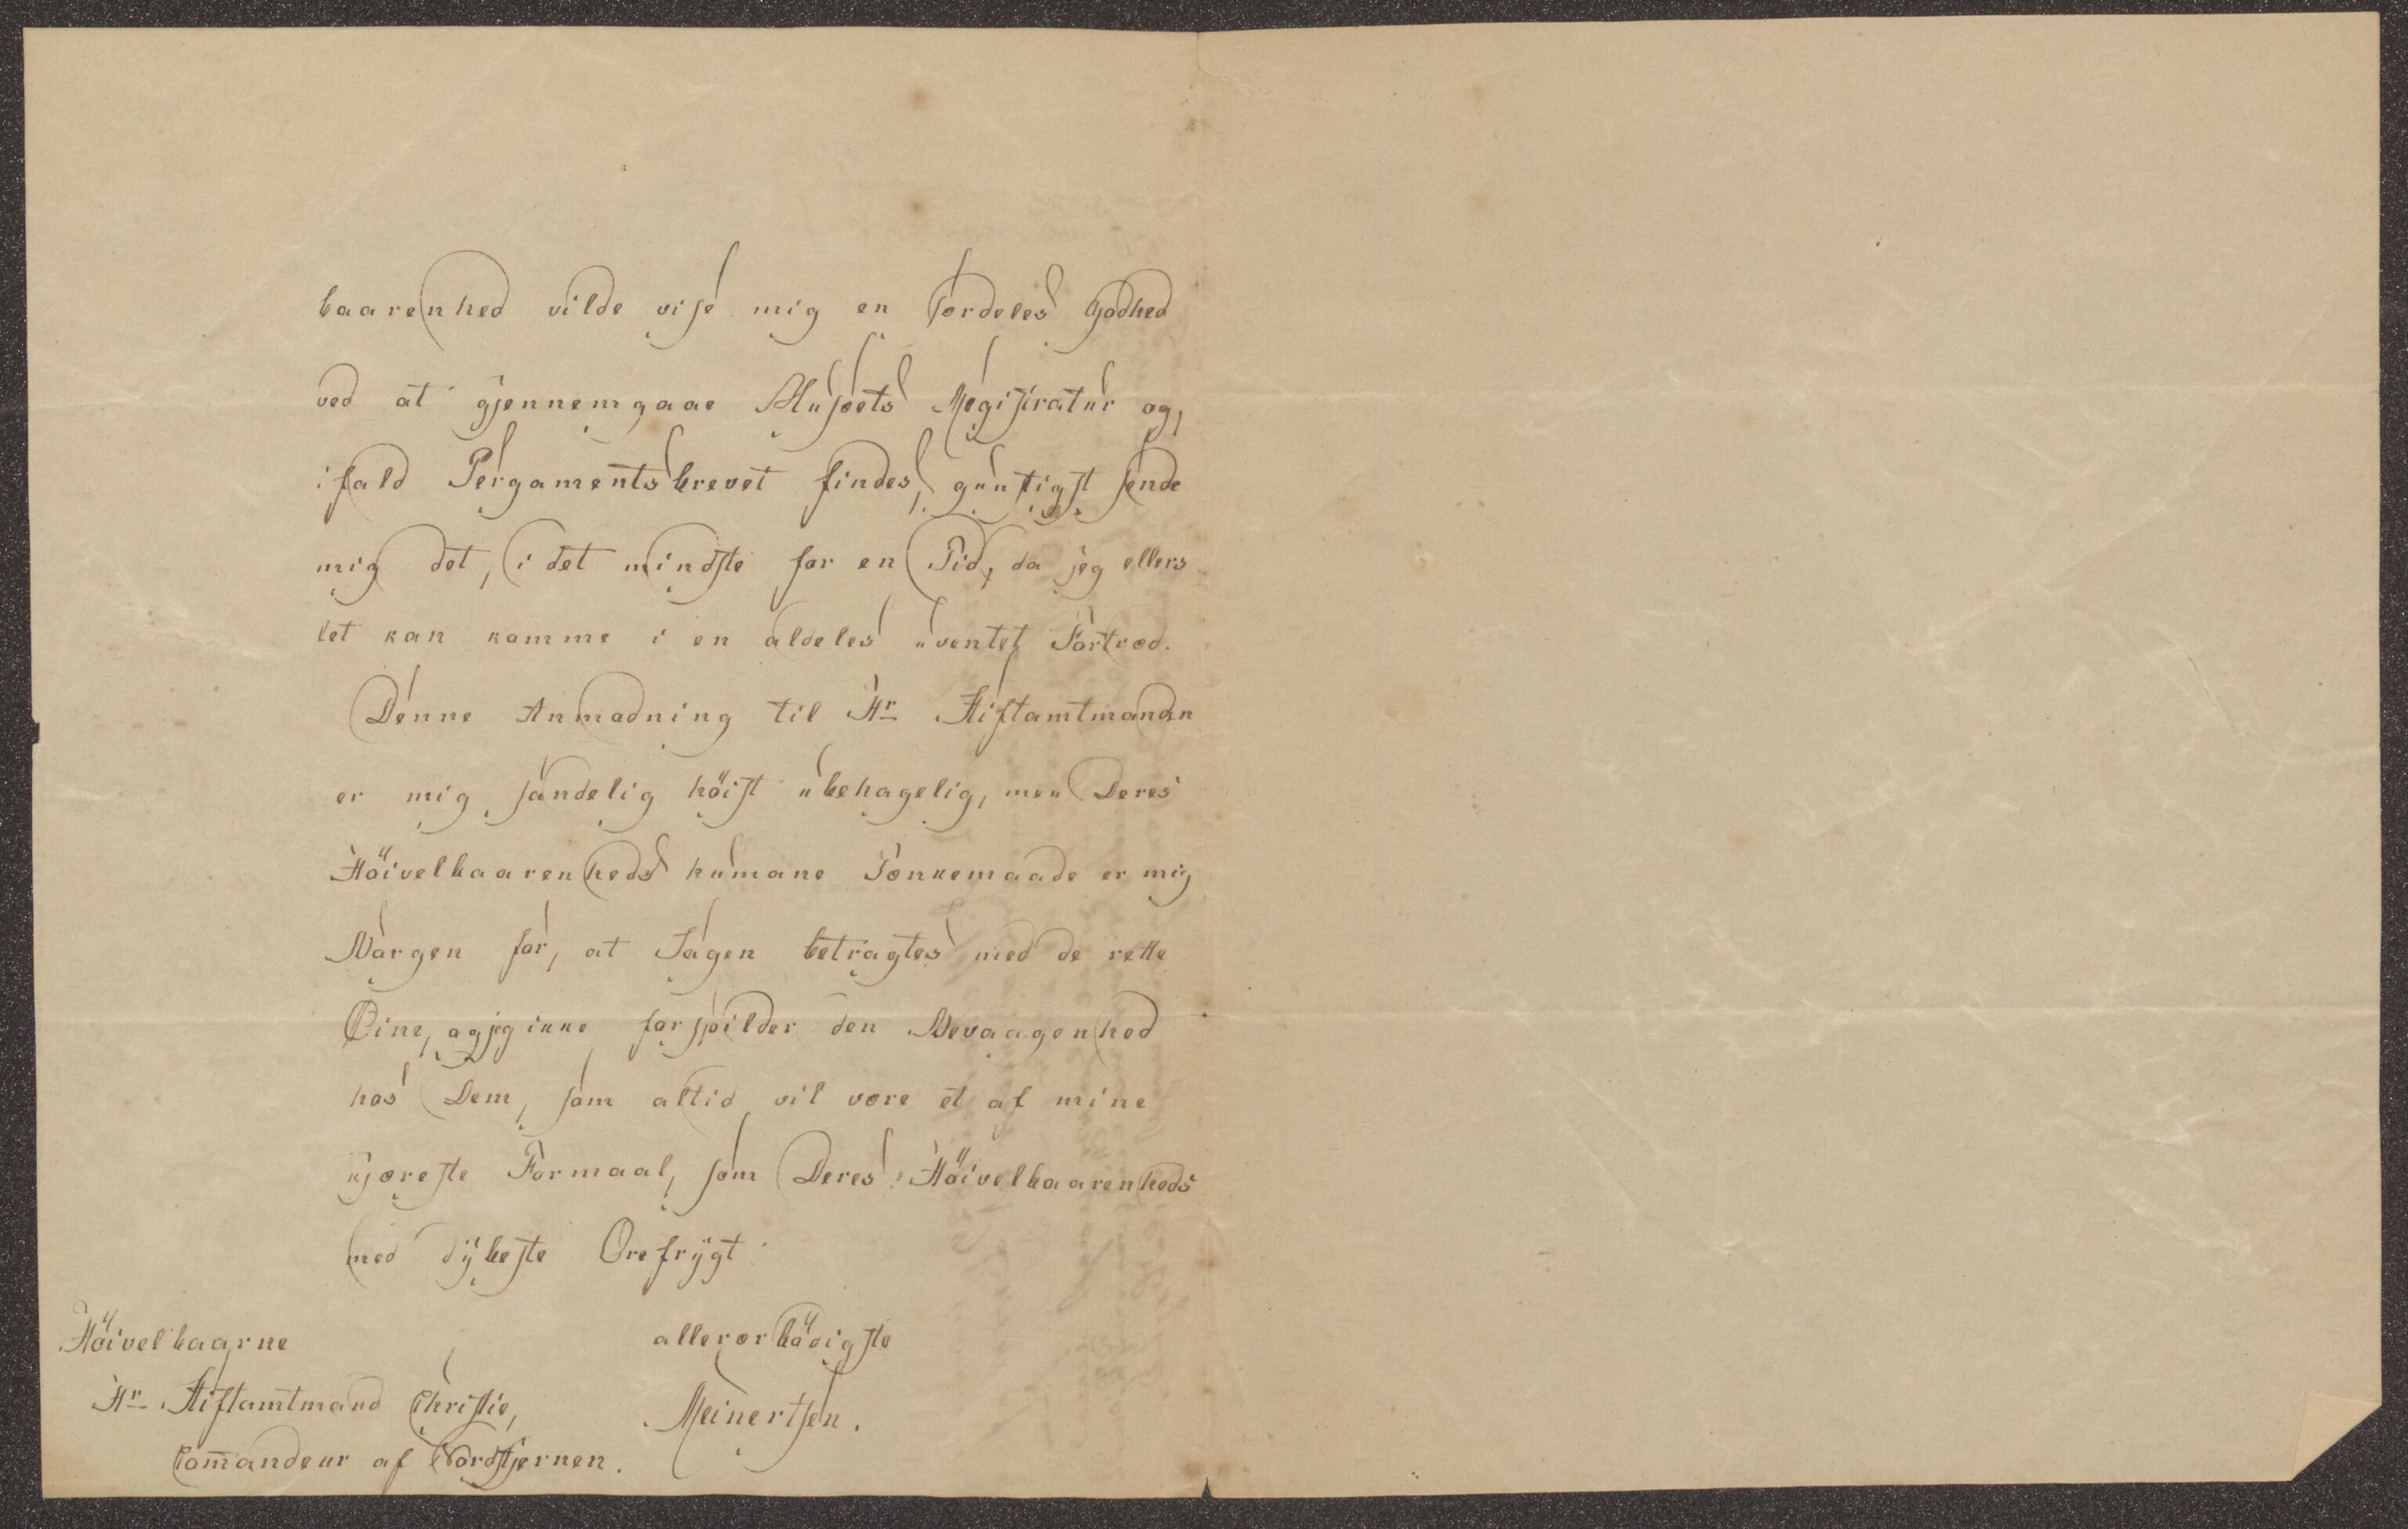 baarenhed vilde vise mig en særdeles Godhed
ved at gjennemgaae Musæets Registratur og,
ifald Pergamentsbrevet findes, gunstigst sende
mig det, i det mindste for en Tid, da jeg ellers
let kan komme i en aldeles uventet Fortræd.
Denne Anmodning til Hr Stiftamtmanden
er mig sandelig höist ubehagelig, men Deres
Höivelbaarenheds humane Tænkemaade er mig
Borgen for, at Sagen betragtes med de rette
Øine, og jeg ikke forspilder den Bevaagenhed
hos Dem, som altid vil være et af mine
kjæreste Formaal, som Deres Höivelbaarenheds
med dÿbeste Ærefrÿgt
Höivelbaarne
allerærbödigste
Hr Stiftamtmand Christie,
Meinertsen.
Com̅andeur af Nordstjernen.